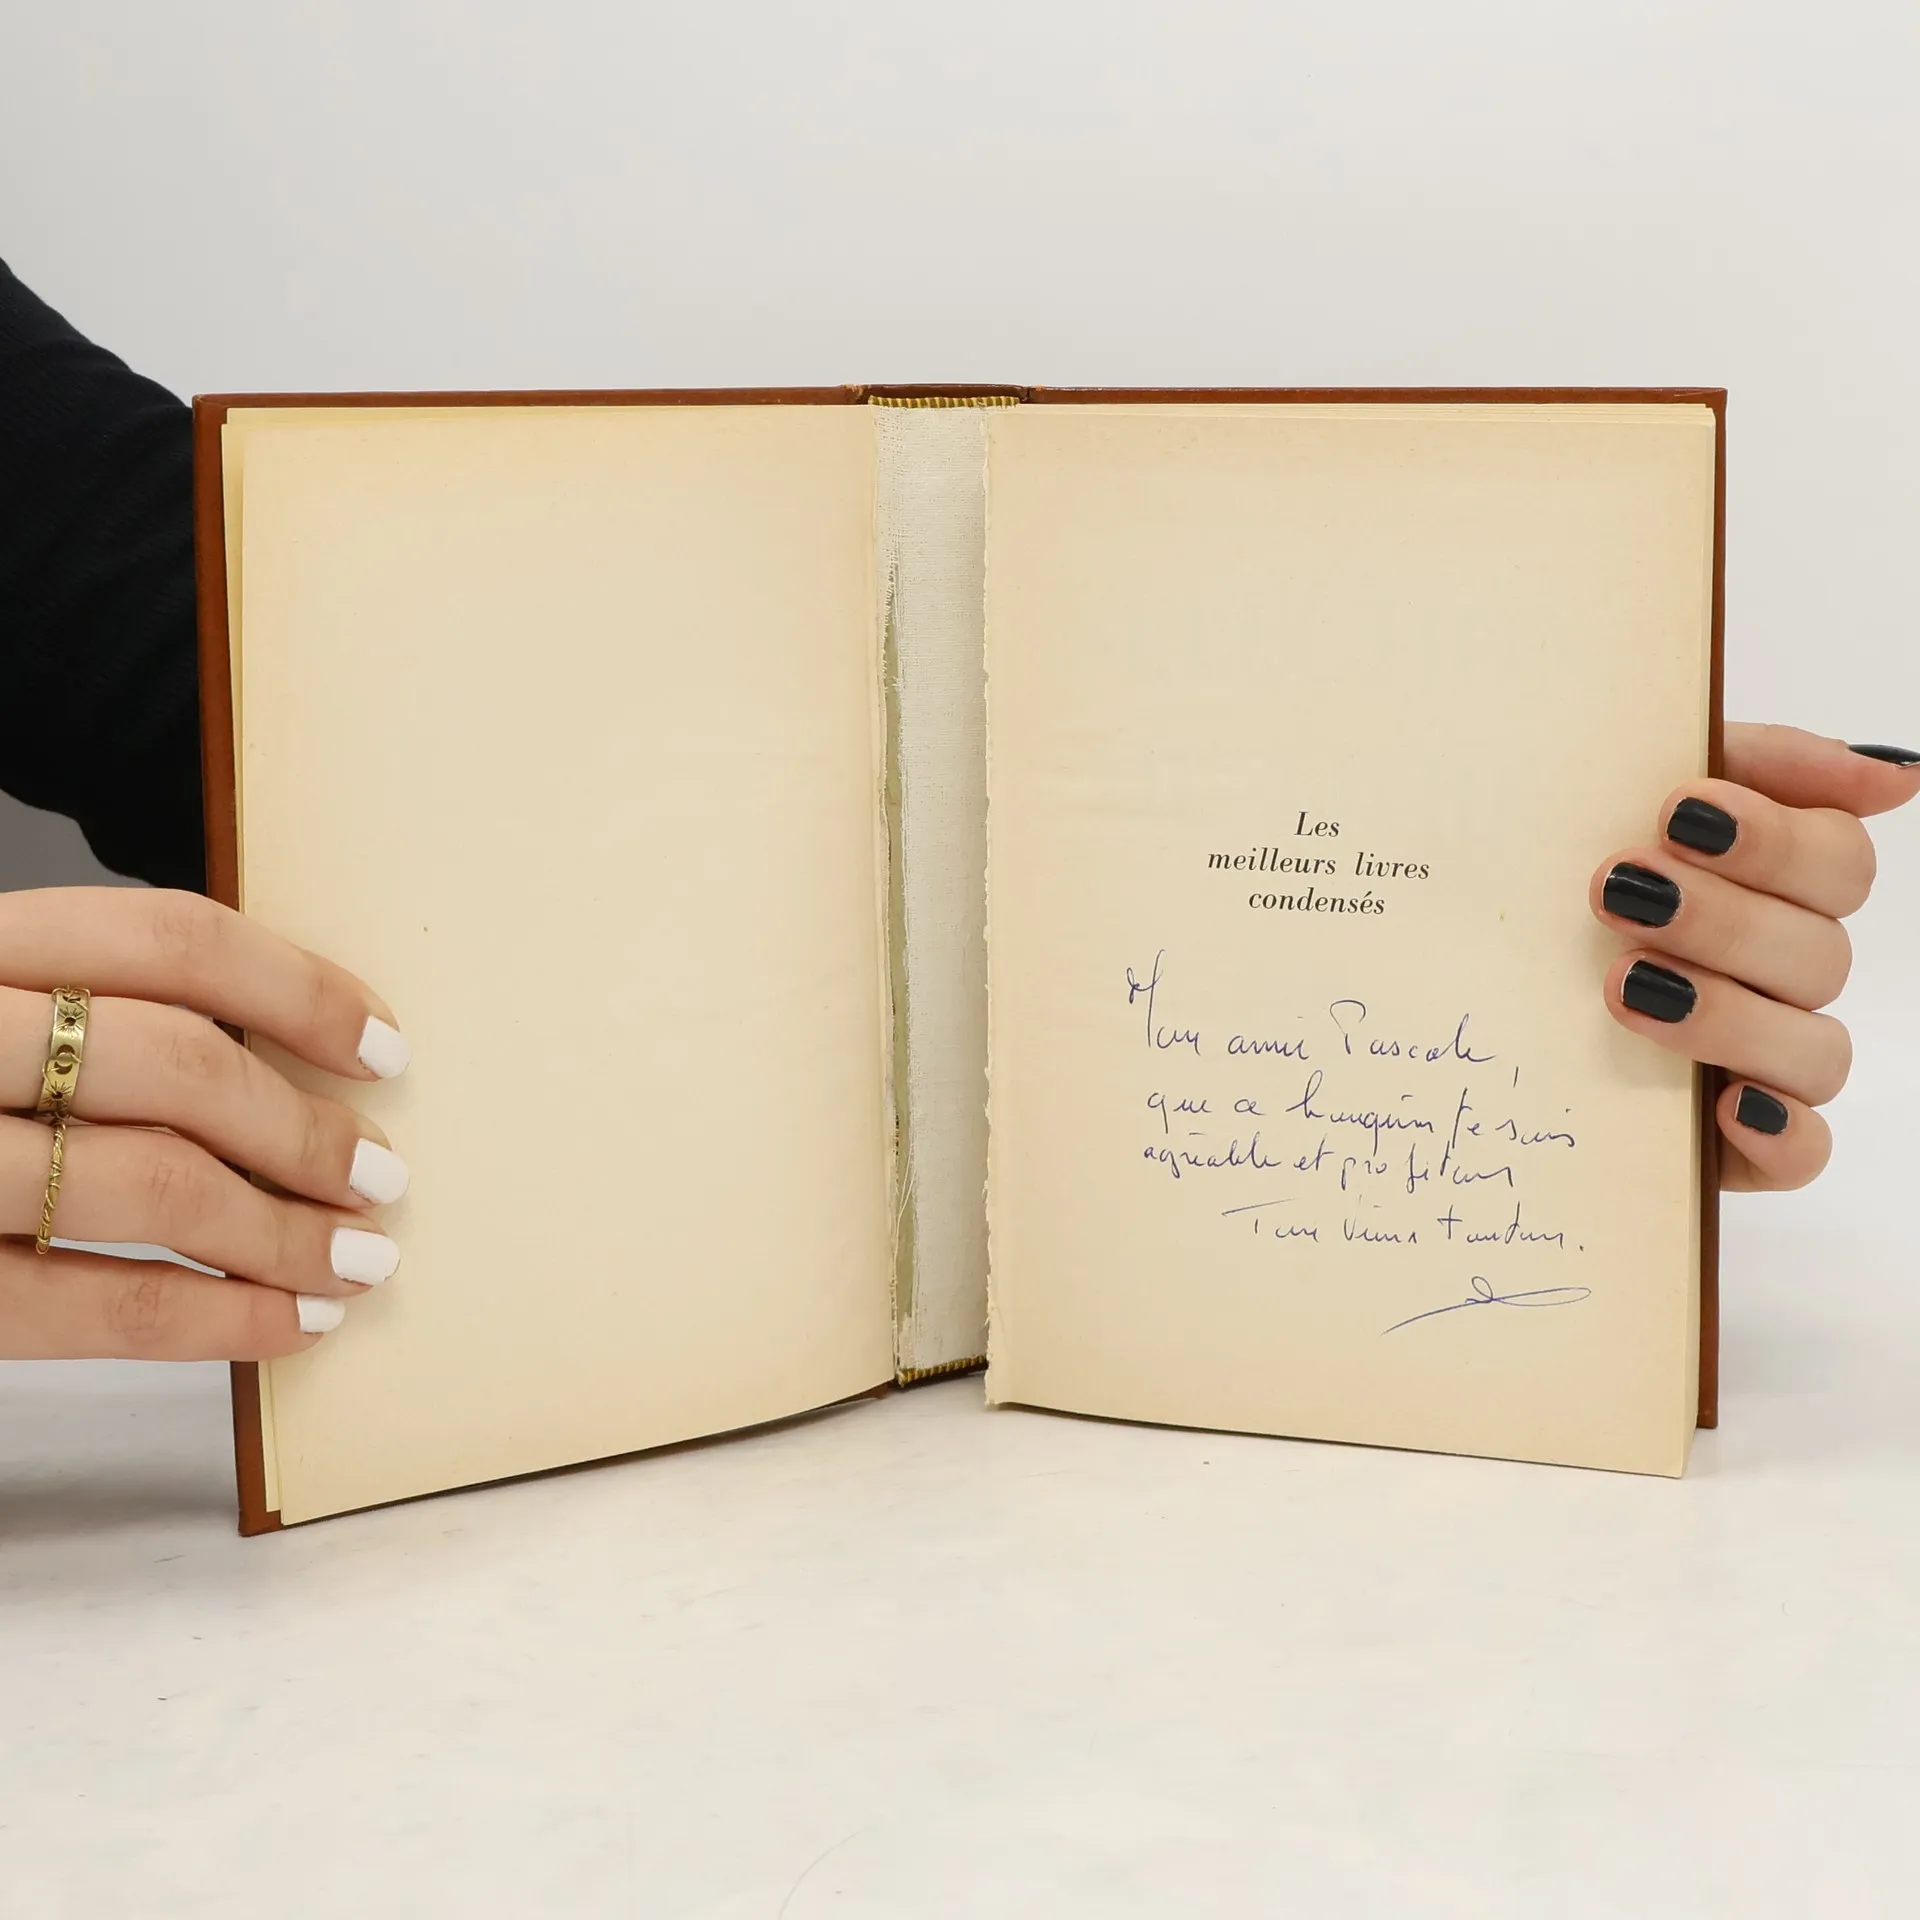 Les
meilleurs livres
condensés
Mon amie Pascale,
que ce bouquin te sois
agréable et profitant
Ton vieux tonton.